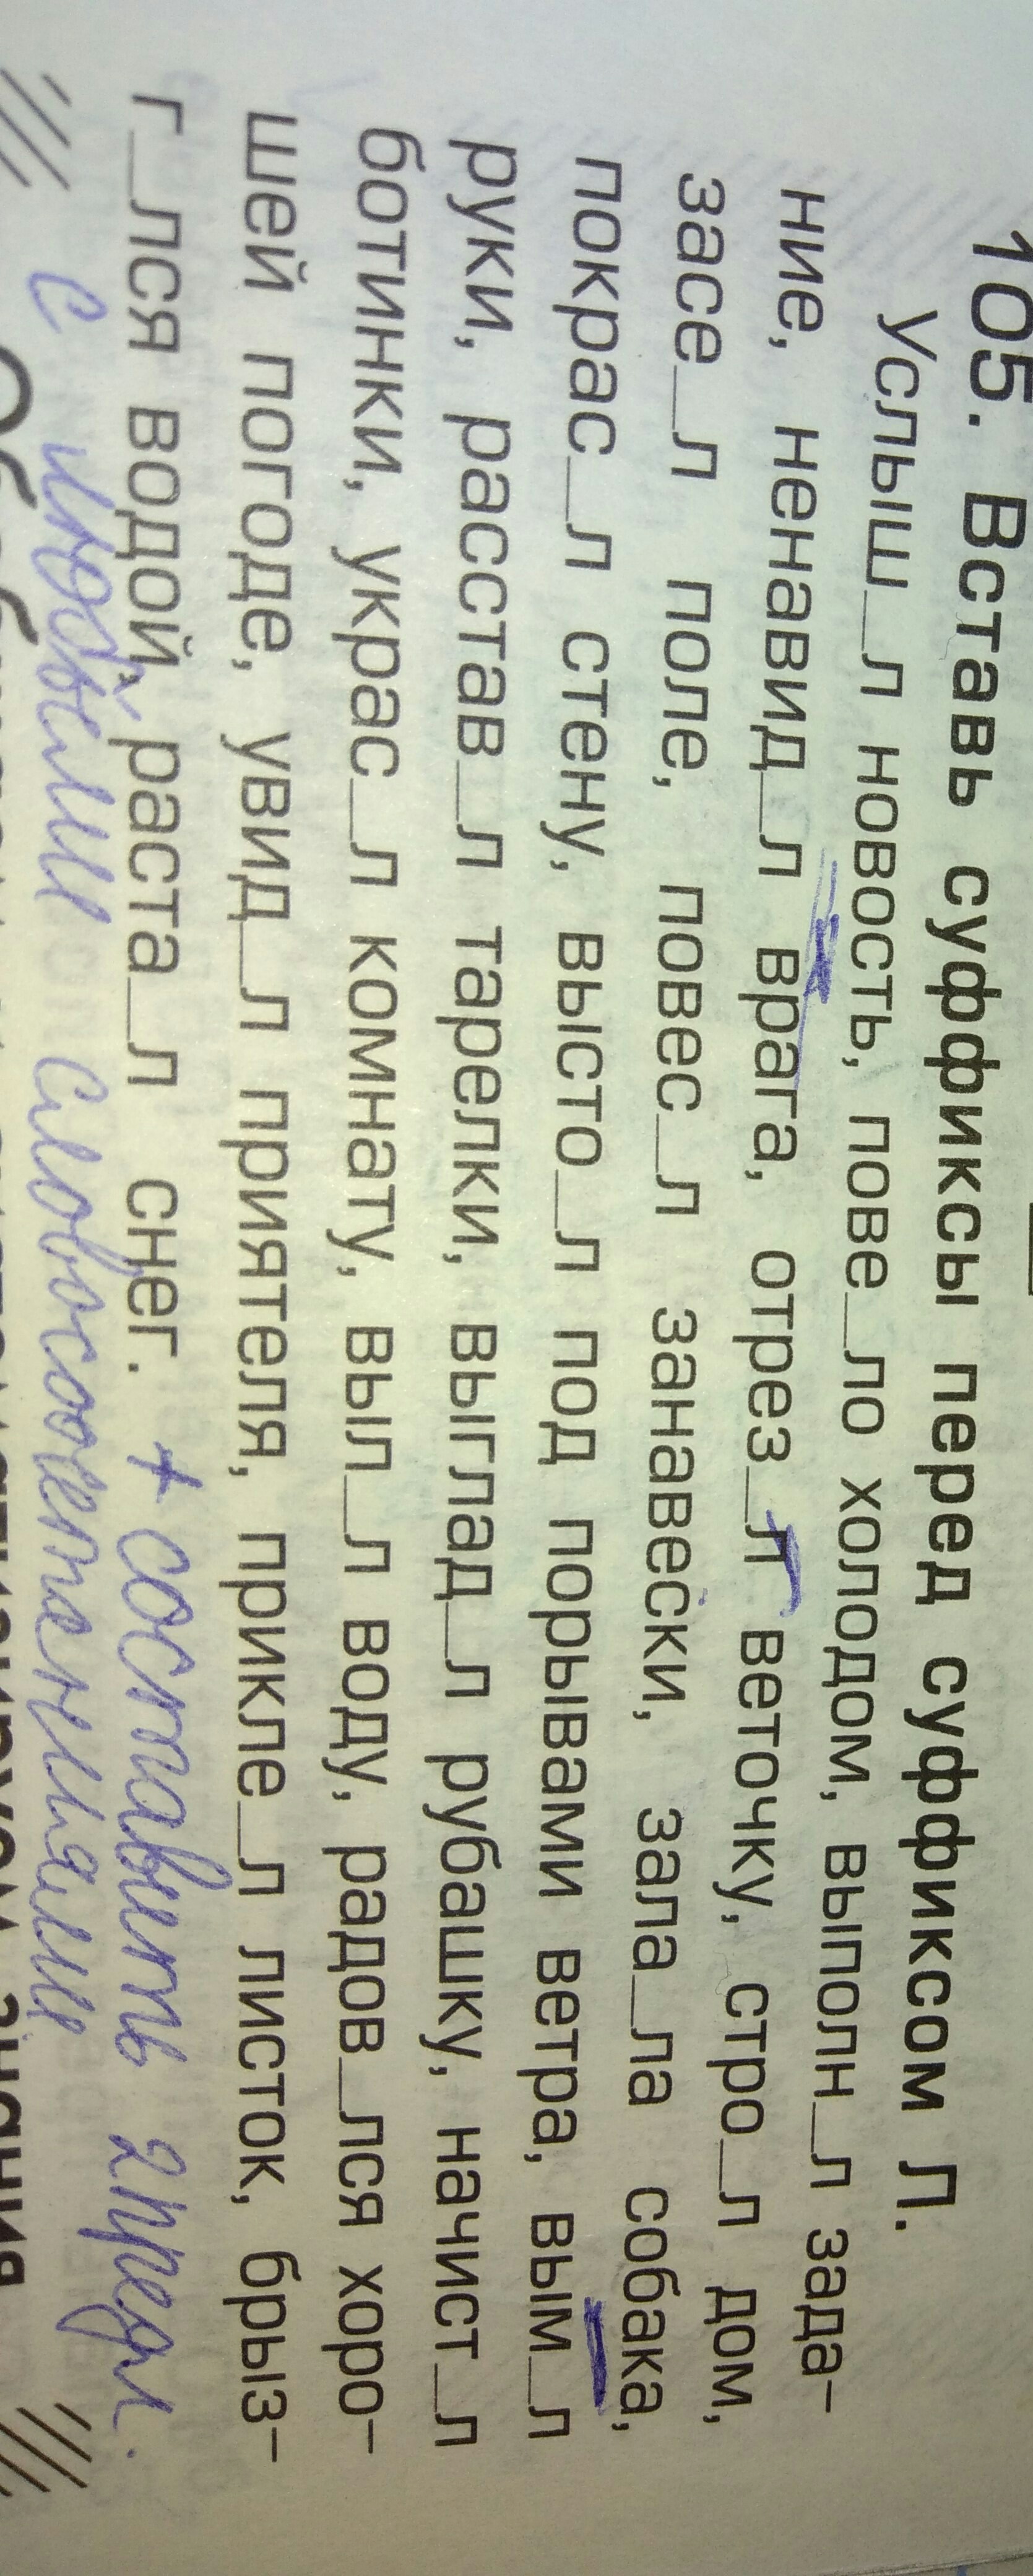 105. Вставь суффиксы перед суффиксом Л.
Услыш_л новость, пове_ло холодом, выполн_л зада-
ние, ненавид_л врага, отрез_л веточку, стро_л дом,
засе_л поле, повес_л занавески, зала_ла собака,
покрас_л стену, высто_л под порывами ветра, вым_л
руки, расстав_л тарелки, выглад_л рубашку, начист_л
ботинки, украс_л комнату, выл_л воду, радов_лся хоро-
шей погоде, увид_л приятеля, прикле_л листок, брыз-
г_лся водой, раста_л снег. + составить 2 предл.
с любыми словосочетаниями